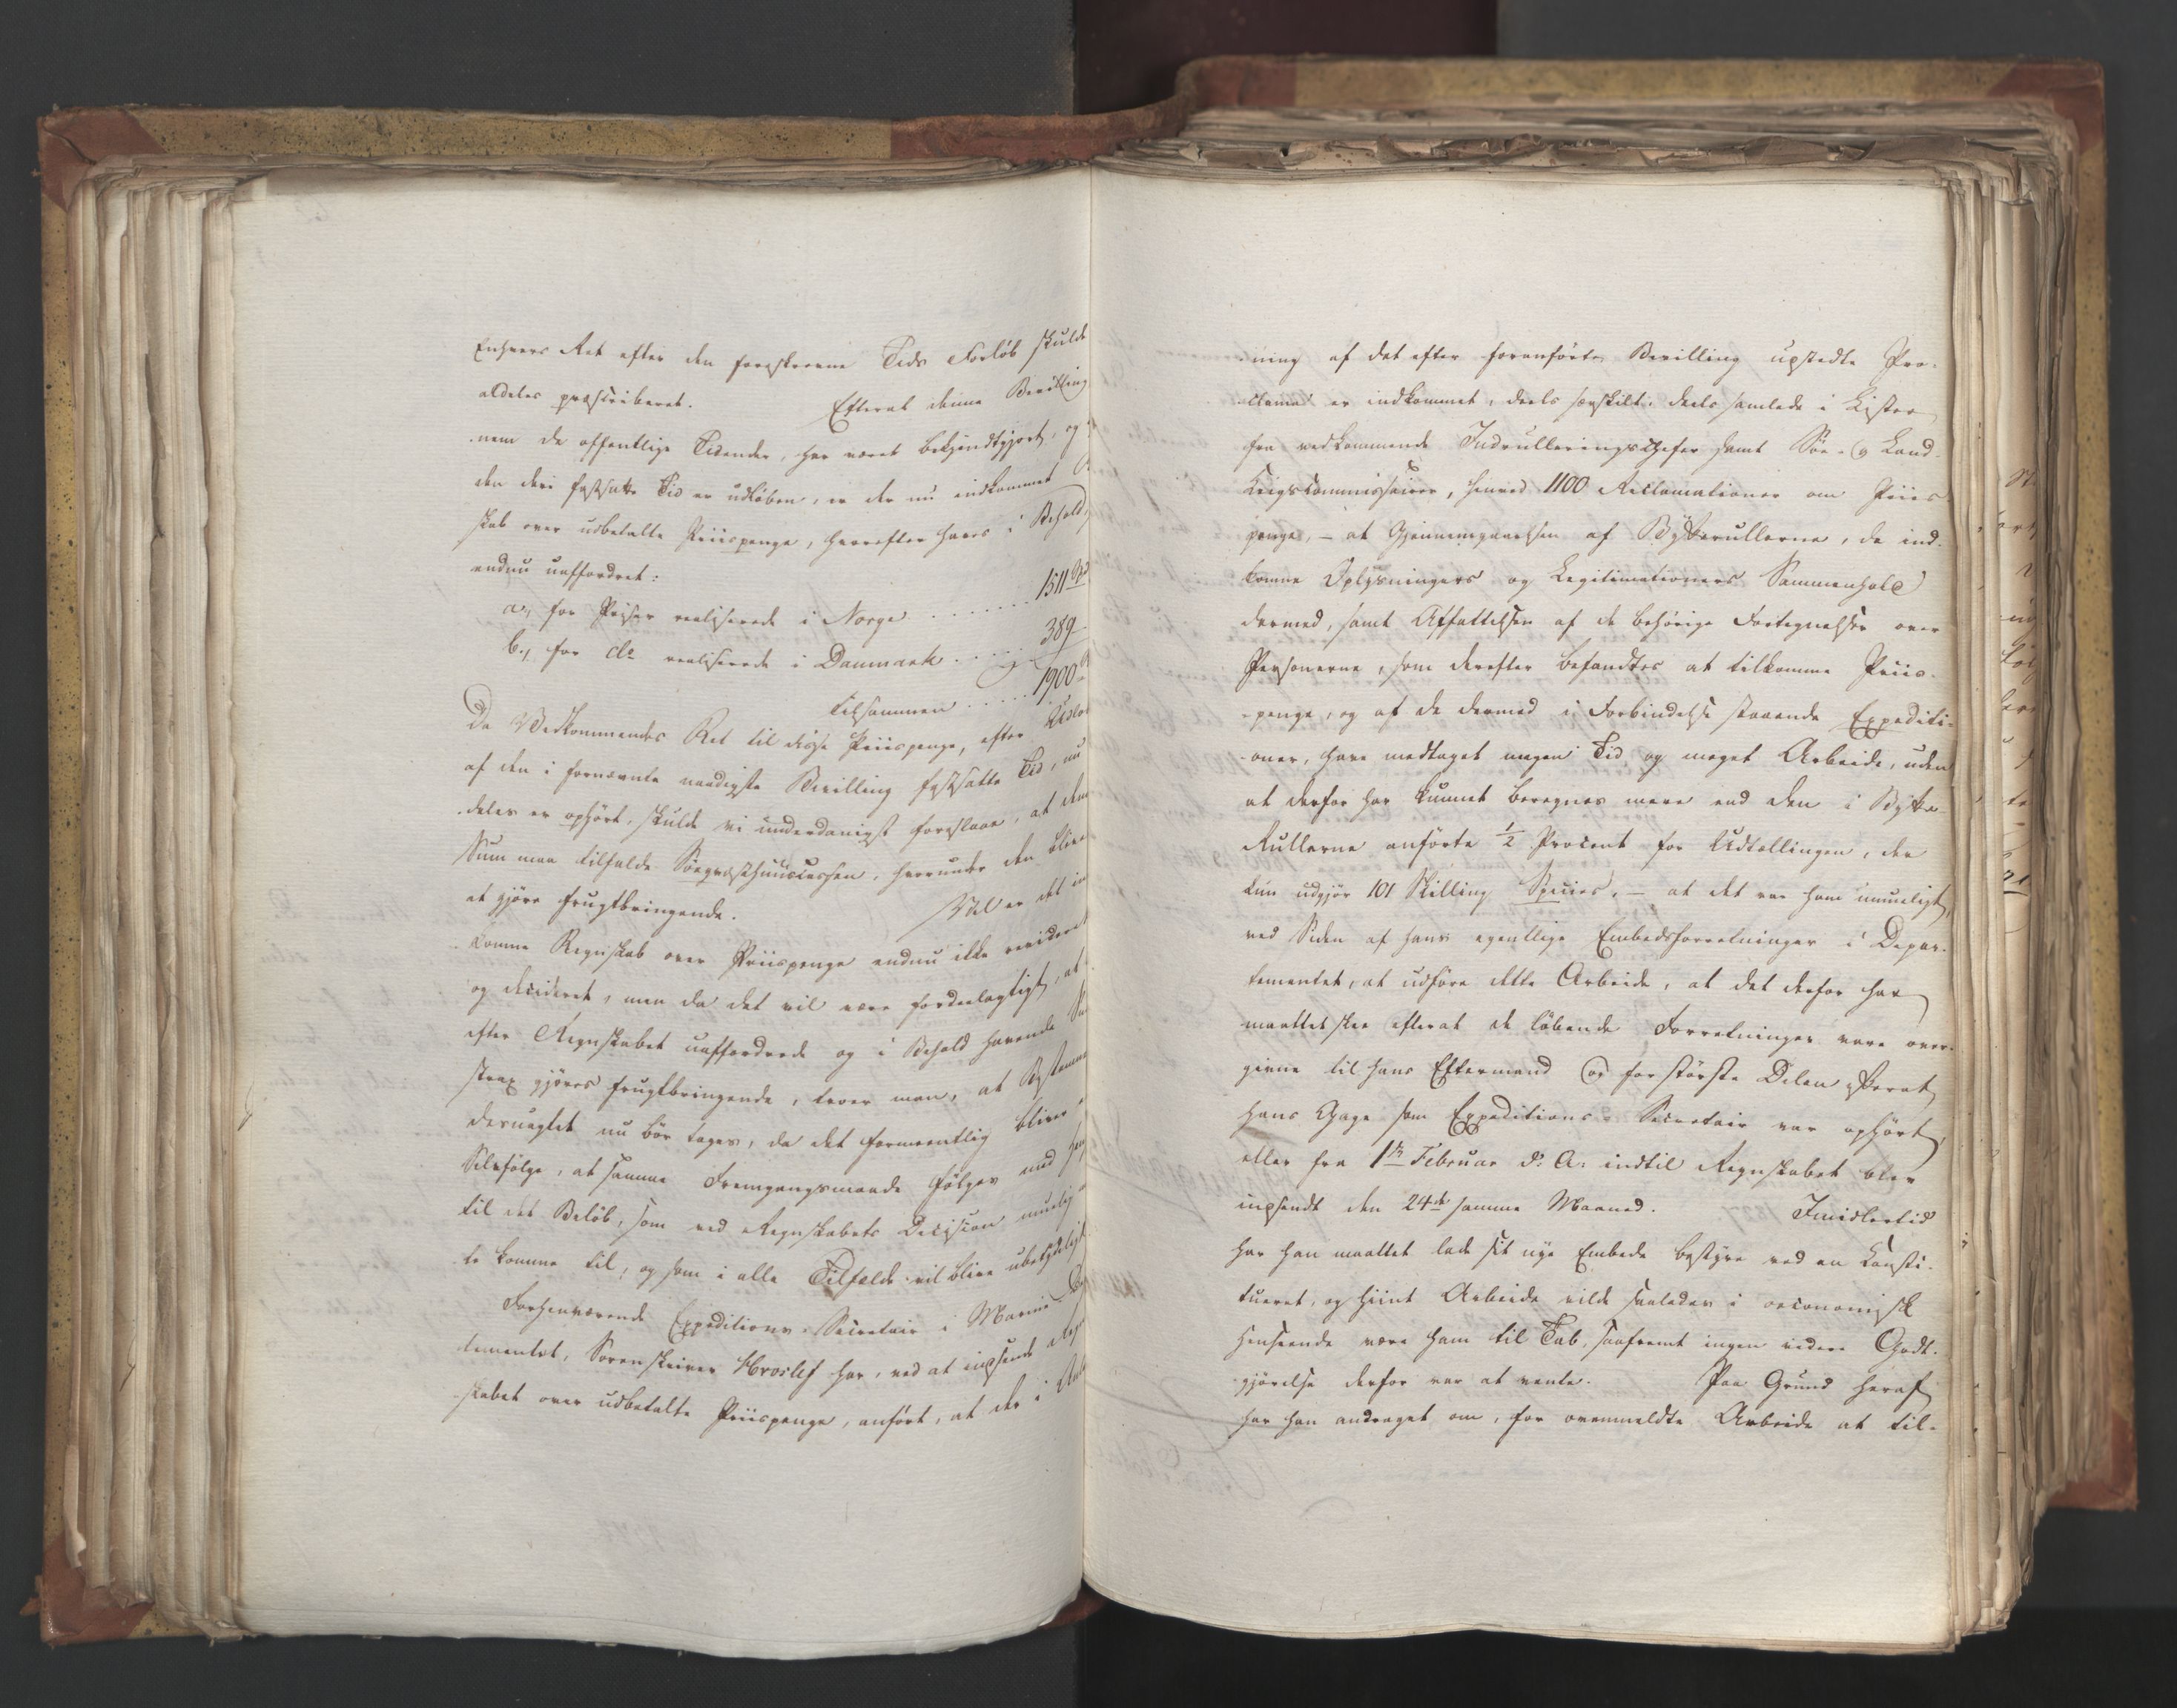 Enhvers Ret efter den foreskrevne Tids Forløb skulde
aldeles præscriberet. Efterat denne Bevilling
nem de offentlige Tidender, har været bekjendtgjort, og
den deri fastsatte Tid er udløben, er der nu indkommet
skab over udbetalte Priispenge, hvorefter haves i Behold,
endnu uaffordret:
a, for Priser realiserede i Norge ........ 1511
b., for do realiserede i Danmark ..... 389
tilsammen ..... 1900
Da Vedkommendes Ret til disse Priispenge, efter
af den i fornævnte naadigste Bevilling fastsatte Tid, nu
deles er ophørt, skulde vi underdanigst foreslaae, at
Sum maa tilfalde Søeqvæsthuuscassen, hvorunder den
at gjøre frugtbringende. Vel er det
komne Regnskab over Priispenge endnu ikke revideret
og decideret, men da det vil være fordeelagtigt, at
efter Regnskabet uaffordrede og i Behold havende
strax gjøres frugtbringende, troer man, at
desuagtet nu bør tages, da det formeentlig bliver
Selvfølge, at samme Fremgangsmaade følges med
til det Beløb, som ved Regnskabets Decision
te komme til, og som i alle Tilfælde vil blive ubetydeligt
Forhenværende Expeditions-Secretair i Marine
tementet, Sorenskriver Hroslef har, ved at indsende
skabet over udbetalte Priispenge, anført, at der i
ning af det efter foranførte Bevilling udstedte Pro-
clama er indkommet, deels særskilt, deels samlede i Lister
fra vedkommende Indrulleringschefer samt Søe- og Land-
krigscommissairer, henved 1100 Reclamationer om Priis
penge, – at Gjennemgaaelsen af Bytterullerne, de ind-
komne Oplysningers og Legitimationers Sammenhold
dermed, samt Affattelsen af de behørige Fortegnelser over
Personerne, som derefter befandtes at tilkomme Priis-
penge, og af de dermed i Forbindelse staaende Expediti-
oner, have medtaget megen Tid og meget Arbeide, uden
at derfor har kunnet beregnes mere end den i Bytte-
Rullerne anførte ½ Procent for Udtællingen, der
kun udgjør 101 Skilling Species, – at det var ham umueligt,
ved Siden af hans egentlige Embedsforretninger i Depar-
tementet, at udføre dette Arbeide, at det derfor har
maattet skee efterat de løbende Forretninger vare over-
givne til hans Eftermand og for største Delen efterat
hans Gage som Expeditions-Secretair var ophørt,
eller fra 1ste Februar d: A: indtil Regnskabet blev
indsendt den 24de samme Maaned. Imidlertid
har han maattet lade sit nye Embede bestyre ved en Consti-
tueret, og hiint Arbeide vilde saaledes i oeconomisk
Henseende være ham til Tab, saafremt ingen videre Godt-
gjørelse derfor var at vente. Paa Grund heraf
har han andraget om, for ovenmeldte Arbeide at til-